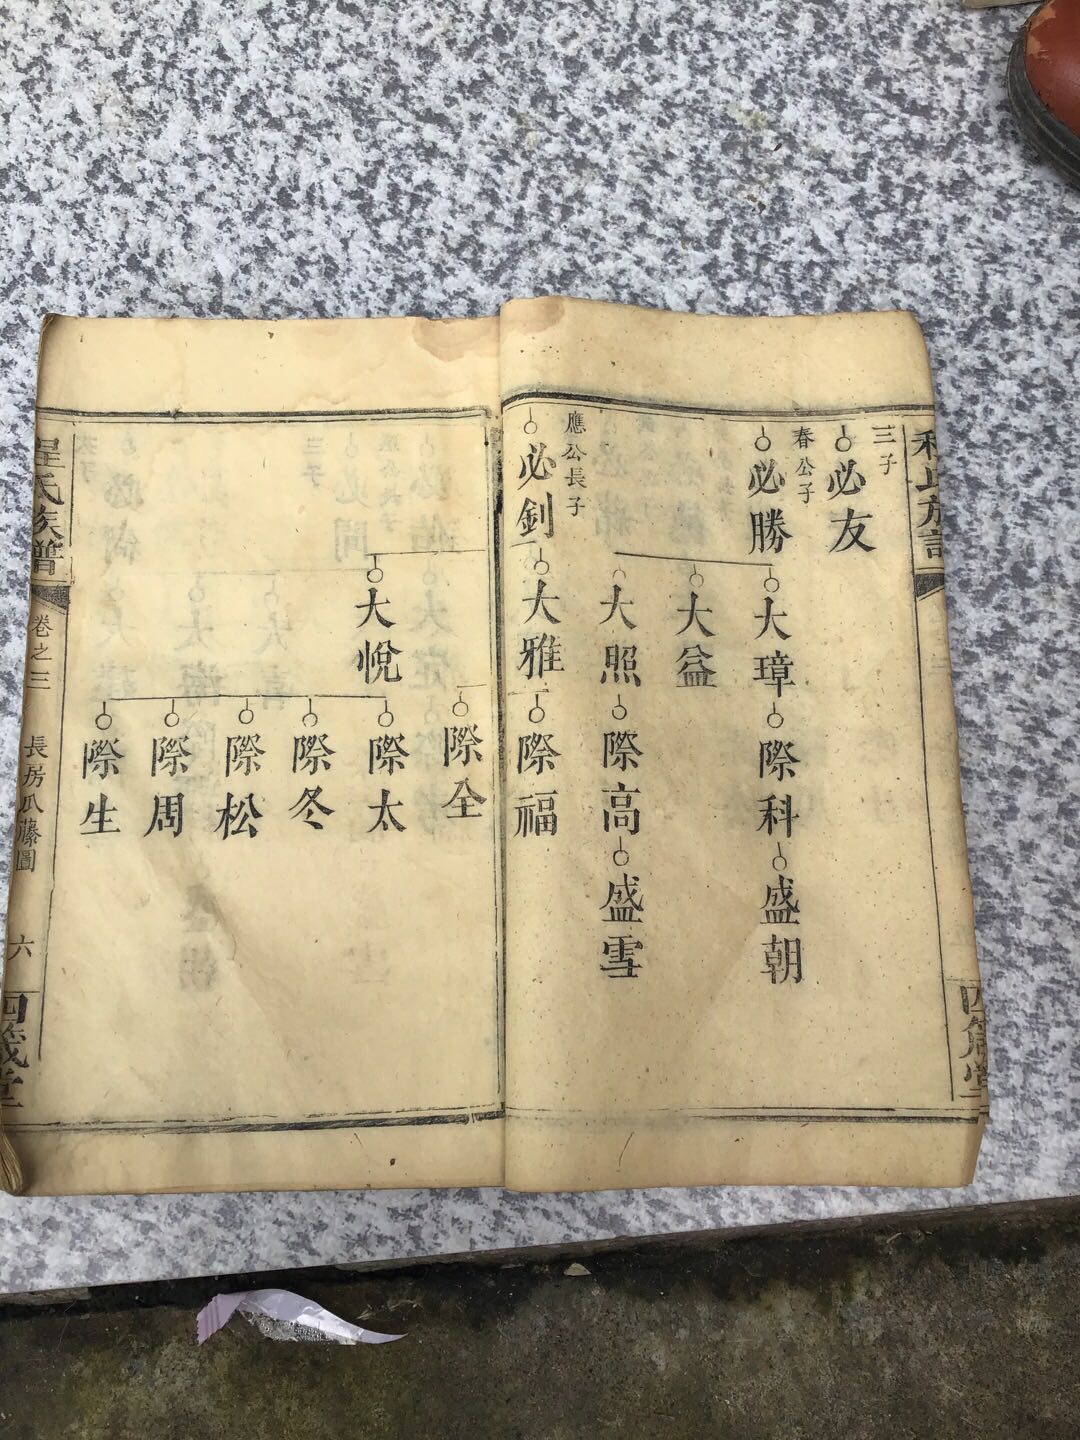 程氏族譜
四箴堂
三子
必友
春公子
必勝
大璋
際科
盛朝
大益
大照
際高
盛雪
應公長子
必釗
大雅
際福
際全
大悅
際太
際冬
際松
際周
際生
程氏族譜
卷之三
長房瓜藤圖
六
四箴堂